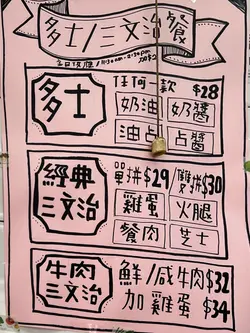 多士/三文治餐
多士
任何一款 $28
奶油 奶醬
油占 占醬
經典
三文治
單拼$29 雙拼$30
雞蛋 火腿
餐肉 芝士
牛肉
三文治
鮮/咸牛肉$32
加雞蛋$34